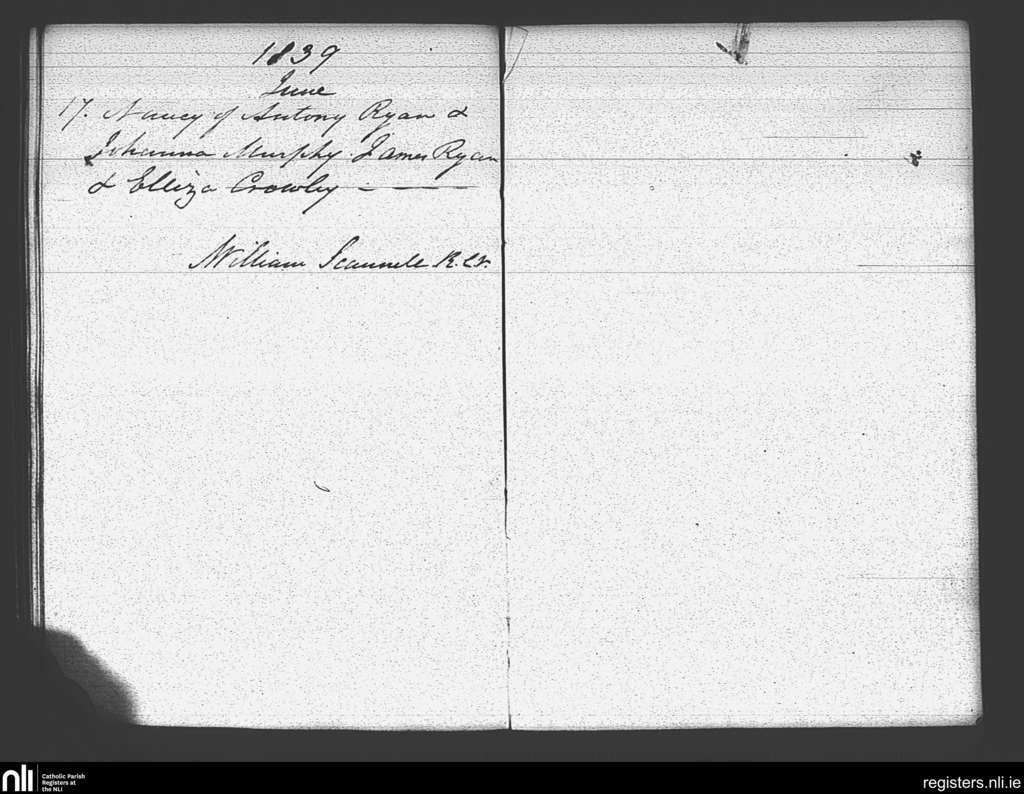 1839
June
17. Nancy of Antony Ryan &
Johanna Murphy. James Ryan
& Elliza Crowley
William Scannell R.C.
nli Catholic Parish
Registers at
the NLI
registers.nli.ie